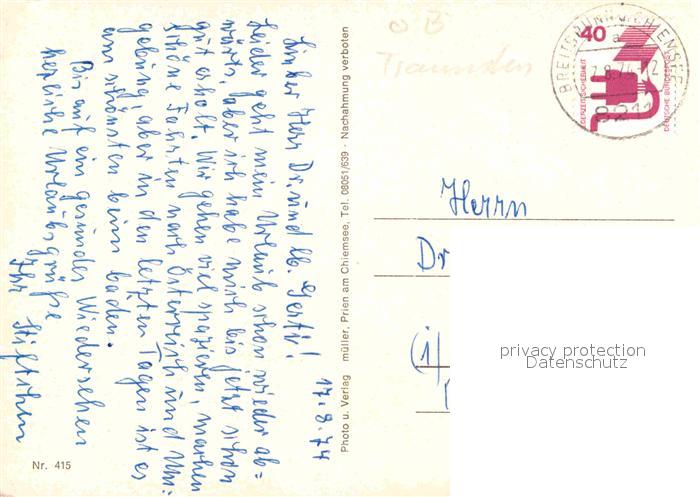 17.8.74
Lieber Herr Dr. und lb. Gerti!
Leider geht mein Urlaub schon wieder ab=
wärts, aber ich habe mich bis jetzt schon
gut erholt. Wir gehen viel spazieren, machen
schöne Fahrten nach Österreich und Um:
gebung, aber in den letzten Tagen ist es
am schönsten beim baden.
Bis auf ein gesundes Wiedersehen
herzliche Urlaubsgrüße
Ihr
Nr. 415
Photo u. Verlag müller, Prien am Chiemsee, Tel. 08051/639 - Nachahmung verboten
o B
Traunstein
40
JEDERZEIT SICHERHEIT
DEUTSCHE BUNDESPOST
BREITBRUNN A CHIEMSEE
a
7.8.74-12
8211
Herrn
Dr
(i)
privacy protection
Datenschutz